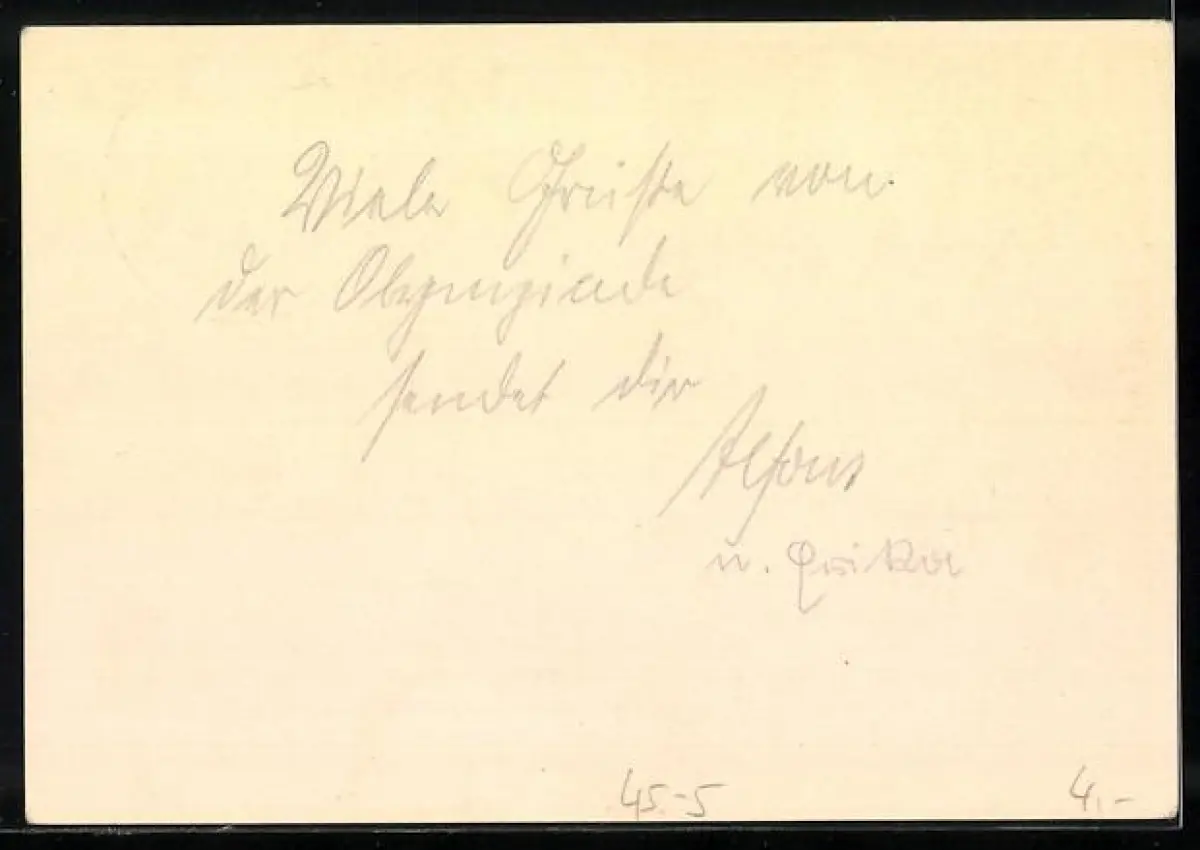 Viele Grüße von
der Olympiade
sendet dir
Alfons
u.
45.-5
4.-